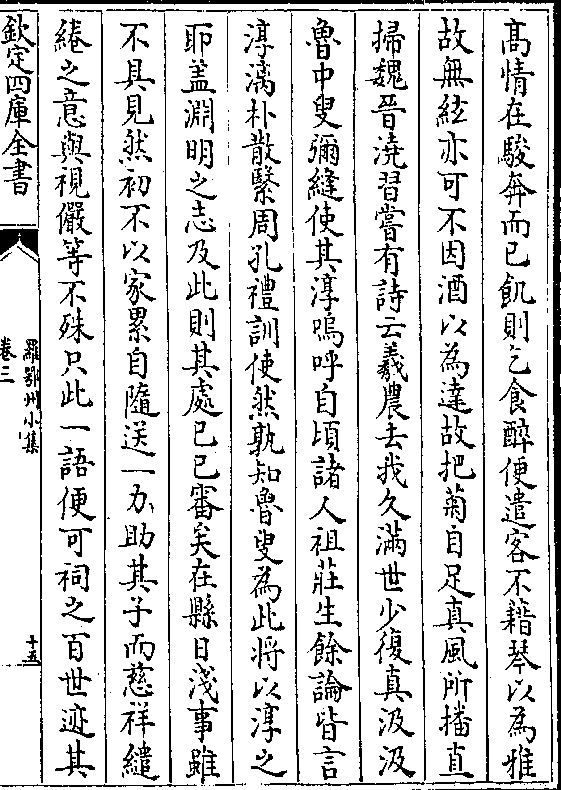 髙情在駿奔而已飢則乞食醉便遣客不藉琴以為雅
故無絃亦可不因酒以為達故把菊自足真風所播直
掃魏晉澆習嘗有詩云羲農去我久滿世少復真汲汲
魯中叟彌縫使其淳嗚呼自頃諸人祖莊生餘論皆言
淳漓朴散繄周孔禮訓使然孰知魯叟為此将以淳之
耶盖淵明之志及此則其處已已審矣在縣日淺事雖
不具見然初不以家累自隨送一力助其子而慈祥繾
綣之意與視儼等不殊只此一語便可祠之百世迹其
欽定四庫全書
羅鄂州小集
卷三
十五